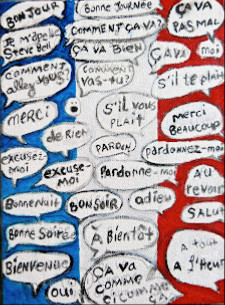 BONJOUR
Bonne Journée
ÇA VA
PAS MAL
Je M'apelle
Steve Bell
COMMENT ÇA VA?
ÇA VA BIEN
ÇA VA
moi
COMMENT
allez vous?
COMMENT
vas-tu?
s'il te plait
MERCI
de Rien
s'il vous
PLAIT
Merci
BEAUCOUP
PARDON
pardonnez-moi
excusez-
moi
excuse-
moi
Pardonne-moi
AU
revoir
Bonne Nuit
BONSOIR
adieu
SALUT
Bonne Soirée
À Bientôt
À tout
à l'Heur
Bienvenue
oui
ÇA VA
COMME
ci COMME
ÇA